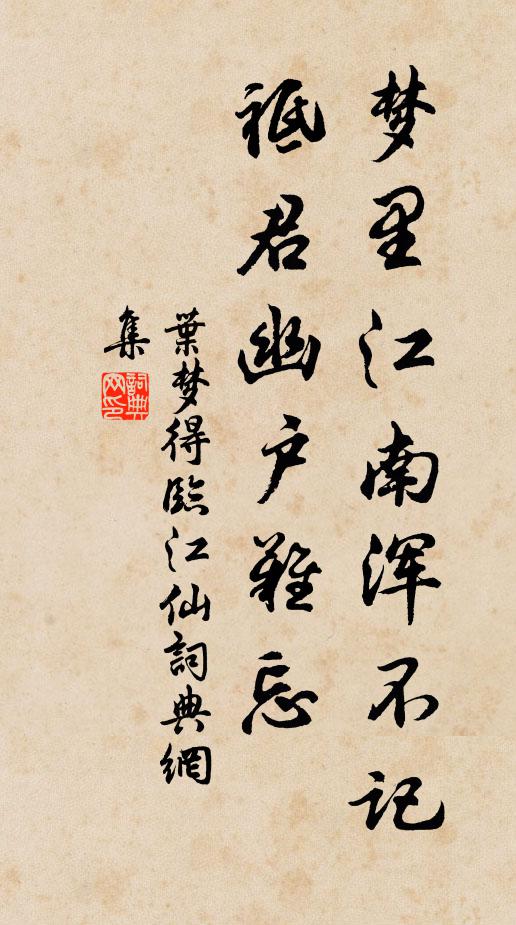 梦里江南浑不记
祗君幽户难忘
葉梦得臨江仙詞典網
集
詞典网印